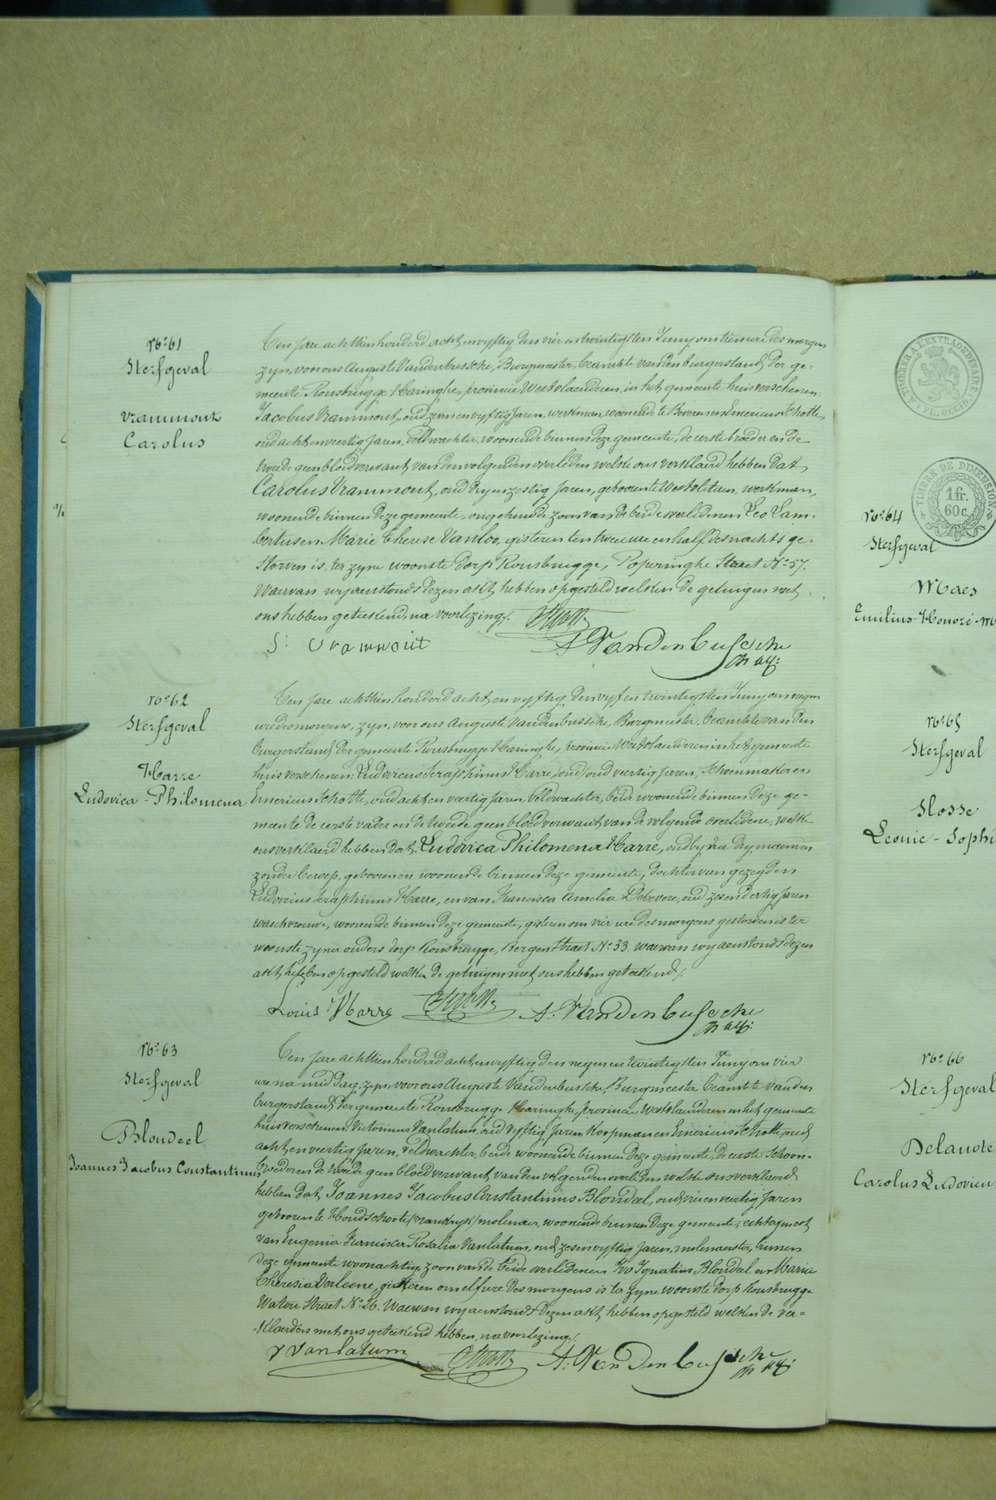 No. 61
Sterfgeval
Vrammout
Carolus
Ten jare achttienhonderd acht en vyftig den vier en twintigsten Juny om tien uren des morgens
zyn voor ons Auguste Vandenbussche, Burgmeester, beambte van den burgerstand der ge-
meente Rousbrugge Haringhe, provincie Westvlaenderen, in het gemeente huis verschenen
Jacobus Vrammout, oud zeven en vyftig jaren, werkman, woonende te Beveren en Emericus Schotte,
oud acht en veertig jaren, veldwachter, woonende binnen deze gemeente, de eerste broeder en de
tweede geen bloedverwant van den volgenden overleden welke ons verklaerd hebben dat
Carolus Vrammout, oud dry en zestig jaren, geboren te Westvleteren, werkman,
woonende binnen deze gemeente, ongehuwde zoon van de beide overledenen Leo Lam-
bertus en Marie Therese Vanloo, gisteren ten twee ure en half des nachts ge-
storven is, ter zyne woonste dorp Rousbrugge, Poperinghe Straet No. 57.
Waervan wy aenstonds dezen akt hebben opgesteld welken de getuigen met
ons hebben geteekend, na voorlezing.
J: Vrammout Schotte A. Vandenbussche
No. 62
Sterfgeval
Harre
Ludovica - Philomena
Ten jare achttien honderd acht en vyftig, den vyf en twintigsten Juny om negen
ure des morgens, zyn voor ons Auguste Vandenbussche, Burgmeester, beambte van den
burgerstand der gemeente Rousbrugge Haringhe, provincie Westvlaenderen in het gemeente
huis verschenen Ludovicus Seraphinus Harre, oud veertig jaren, schoenmaker en
Emericus Schotte, oud acht en veertig jaren, veldwachter, beide woonende binnen deze ge-
meente de eerste vader en de tweede geen bloedverwant van de volgende overledene, welke
ons verklaerd hebben dat Ludovica Philomena Harre, oud dry maenden
zonder beroep, geboren en woonende binnen deze gemeente, dochter van gezegden
Ludovicus Seraphinus Harre, en van Francisca Amelia Debevere, oud zes en dertig jaren
, woonende binnen deze gemeente, gisteren om vier ure des morgens gestorven is ter
woonste zyne ouders dorp Rousbrugge, Bergen Straet No. 33 waervan wy aenstonds dezen
akt hebben opgesteld welken de getuigen met ons hebben geteekend,
Louis Harre Schotte A. Vandenbussche
No. 63
Sterfgeval
Blondeel
Joannes Jacobus Constantinus
Ten jare achttien honderd acht en vyftig den negen en twintigsten Juny om vier
ure na middag, zyn voor ons Auguste Vandenbussche, Burgmeester beambte van den
burgerstand der gemeente Rousbrugge Haringhe, provincie Westvlaenderen in het gemeente
huis verschenen Victorinus Vanlatum, oud vyftig jaren koopman en Emericus Schotte, oud
acht en veertig jaren, veldwachter, beide woonende binnen deze gemeente, de eerste schoon-
broeder en de tweede geen bloedverwant van den volgenden overleden welke ons verklaerd
hebben dat Joannes Jacobus Constantinus Blondeel, oud vier en veertig jaren
geboren te Hondschoote (Vrankryk) molenaer, woonende binnen deze gemeente, echtgenoot
van Eugenia Francisca Rosalia Vanlatum, oud zes en vyftig jaren, molenaerster, binnen
deze gemeente woonachtig, zoon van de beide overledenen Ivo Ignatius Blondeel en Marie
Theresia, gisteren om elf ure des morgens is te zyne woonste dorp Rousbrugge
Watou Straet No. 26. Waervan wy aenstonds dezen akt hebben opgesteld welken de ver-
klaerders met ons geteekend hebben, na voorlezing.
V Vanlatum Schotte A. Vandenbussche
TIMBRE DE DIMENSION
1 fr.
60 c.
No. 64
Sterfgeval
Maes
Emilius Honoré
No. 65
Sterfgeval
Hosse
Leonie - Sophi
No. 66
Sterfgeval
Delanote
Carolus Ludovicus